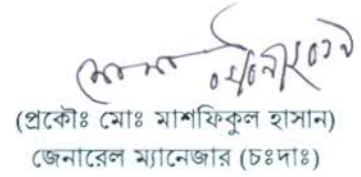 (প্রকৌঃ মোঃ মাশফিকুল হাসান)
জেনারেল ম্যানেজার (চঃদাঃ)